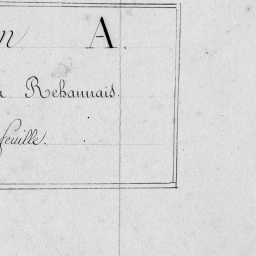 n A.
Rehaunais.
feuille.